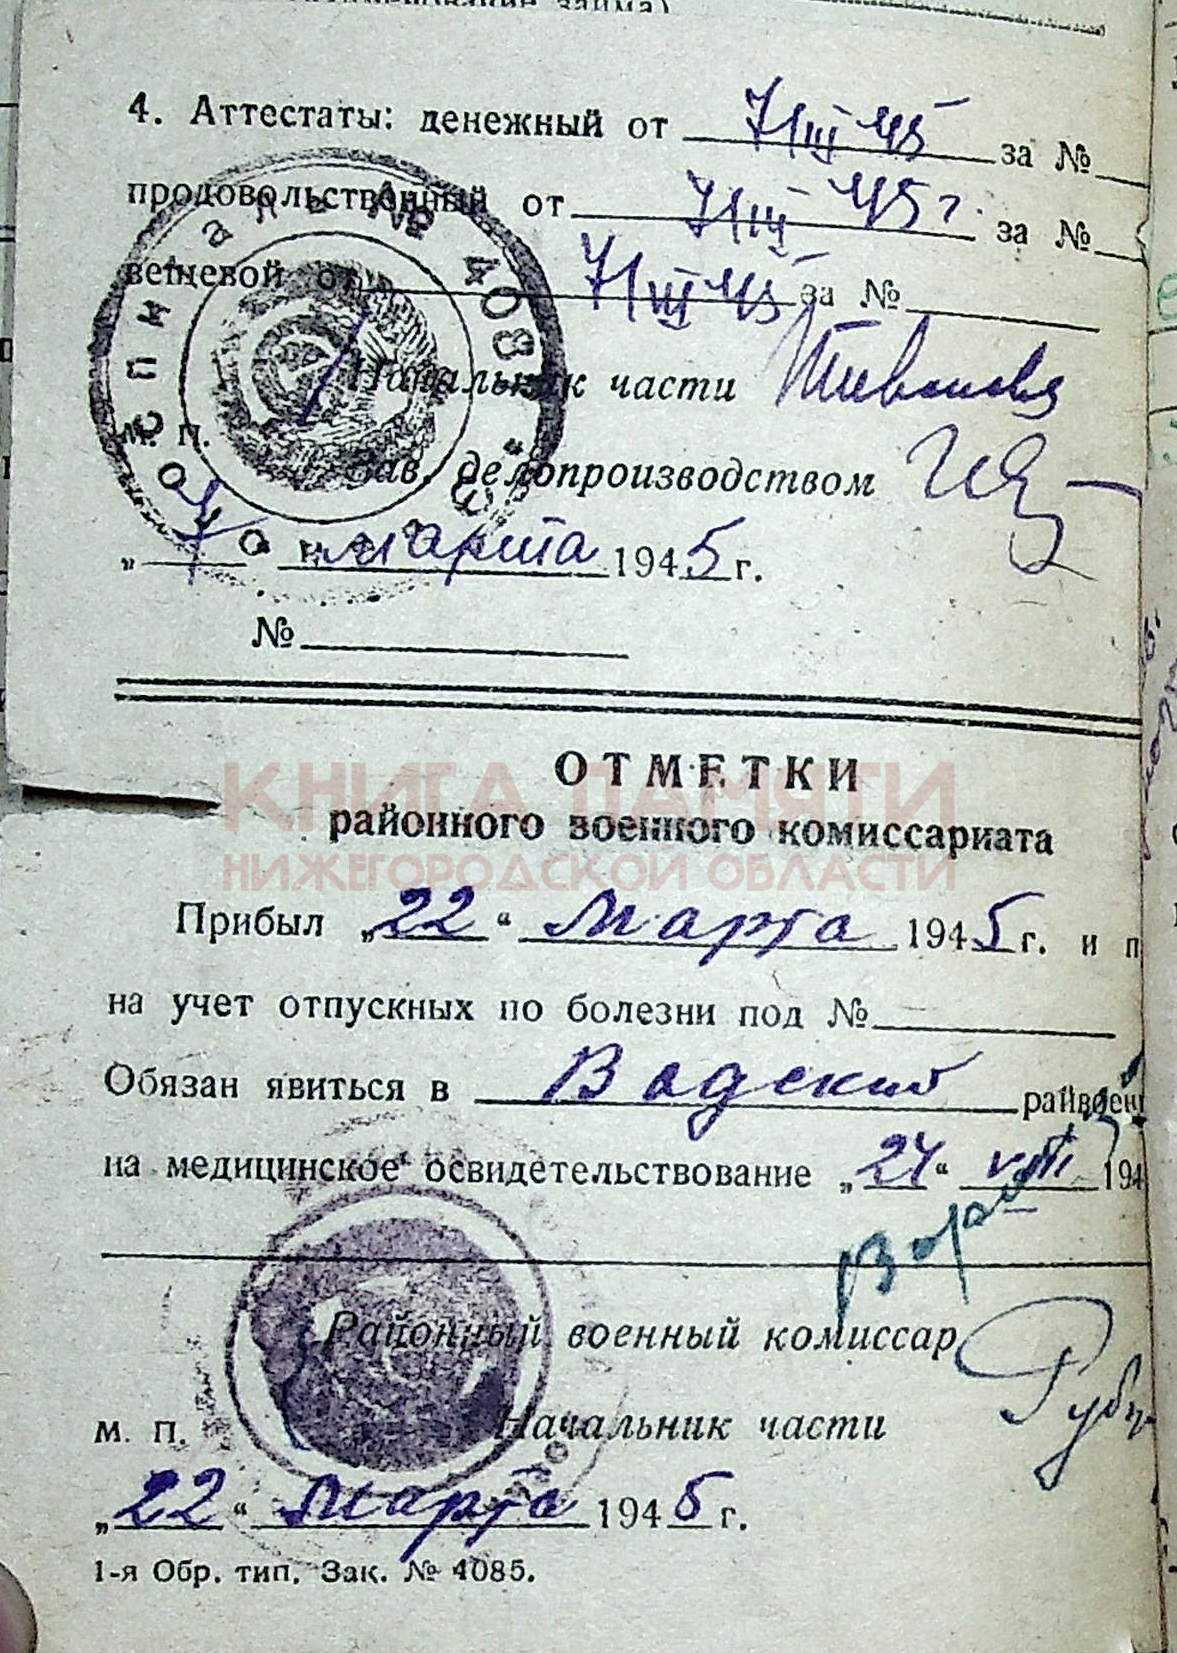 4. Аттестаты: денежный от 7/III 45 за №
продовольственный от 7/III 45 г. за №
вещевой от 7/III 45 за №
Начальник части
м. п.
Зав. делопроизводством
„7 марта 1945 г.
№
Госпиталь № 408
ОТМЕТКИ
районного военного комиссариата
КНИГА ПАМЯТИ
НИЖЕГОРОДСКОЙ ОБЛАСТИ
Прибыл „22“ Марта 1945 г. и п
на учет отпускных по болезни под №
Обязан явиться в Вадский райвоен
на медицинское освидетельствование „24“ VIII 194
Районный военный комиссар
м. п. Начальник части
„22“ Марта 1945 г.
1-я Обр. тип. Зак. № 4085.